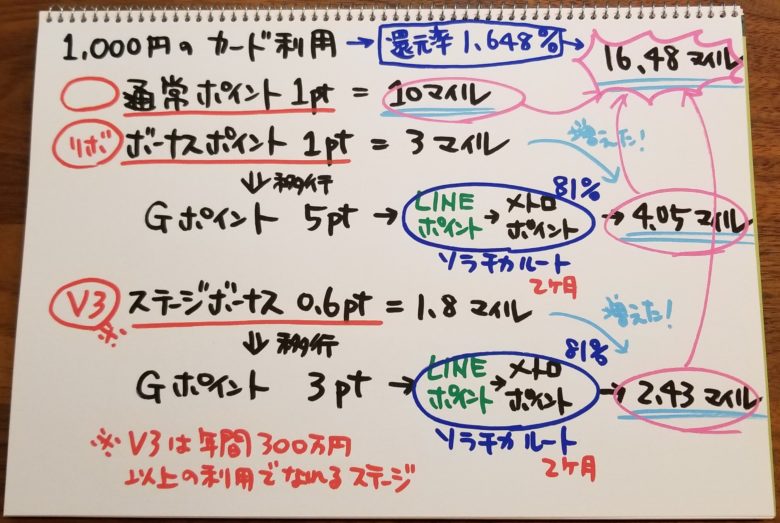 1,000円のカード利用 → 還元率 1.648% → 16.48マイル
通常ポイント 1pt = 10マイル
リボ ボーナスポイント 1pt = 3マイル 増えた!
↓移行
Gポイント 5pt → LINEポイント → メトロポイント 81% → 4.05マイル
ソラチカルート
2ヶ月
V3 ※ ステージボーナス 0.6pt = 1.8マイル 増えた!
↓移行
Gポイント 3pt → LINEポイント → メトロポイント 81% → 2.43マイル
ソラチカルート
2ヶ月
※ V3は年間300万円
以上の利用でなれるステージ